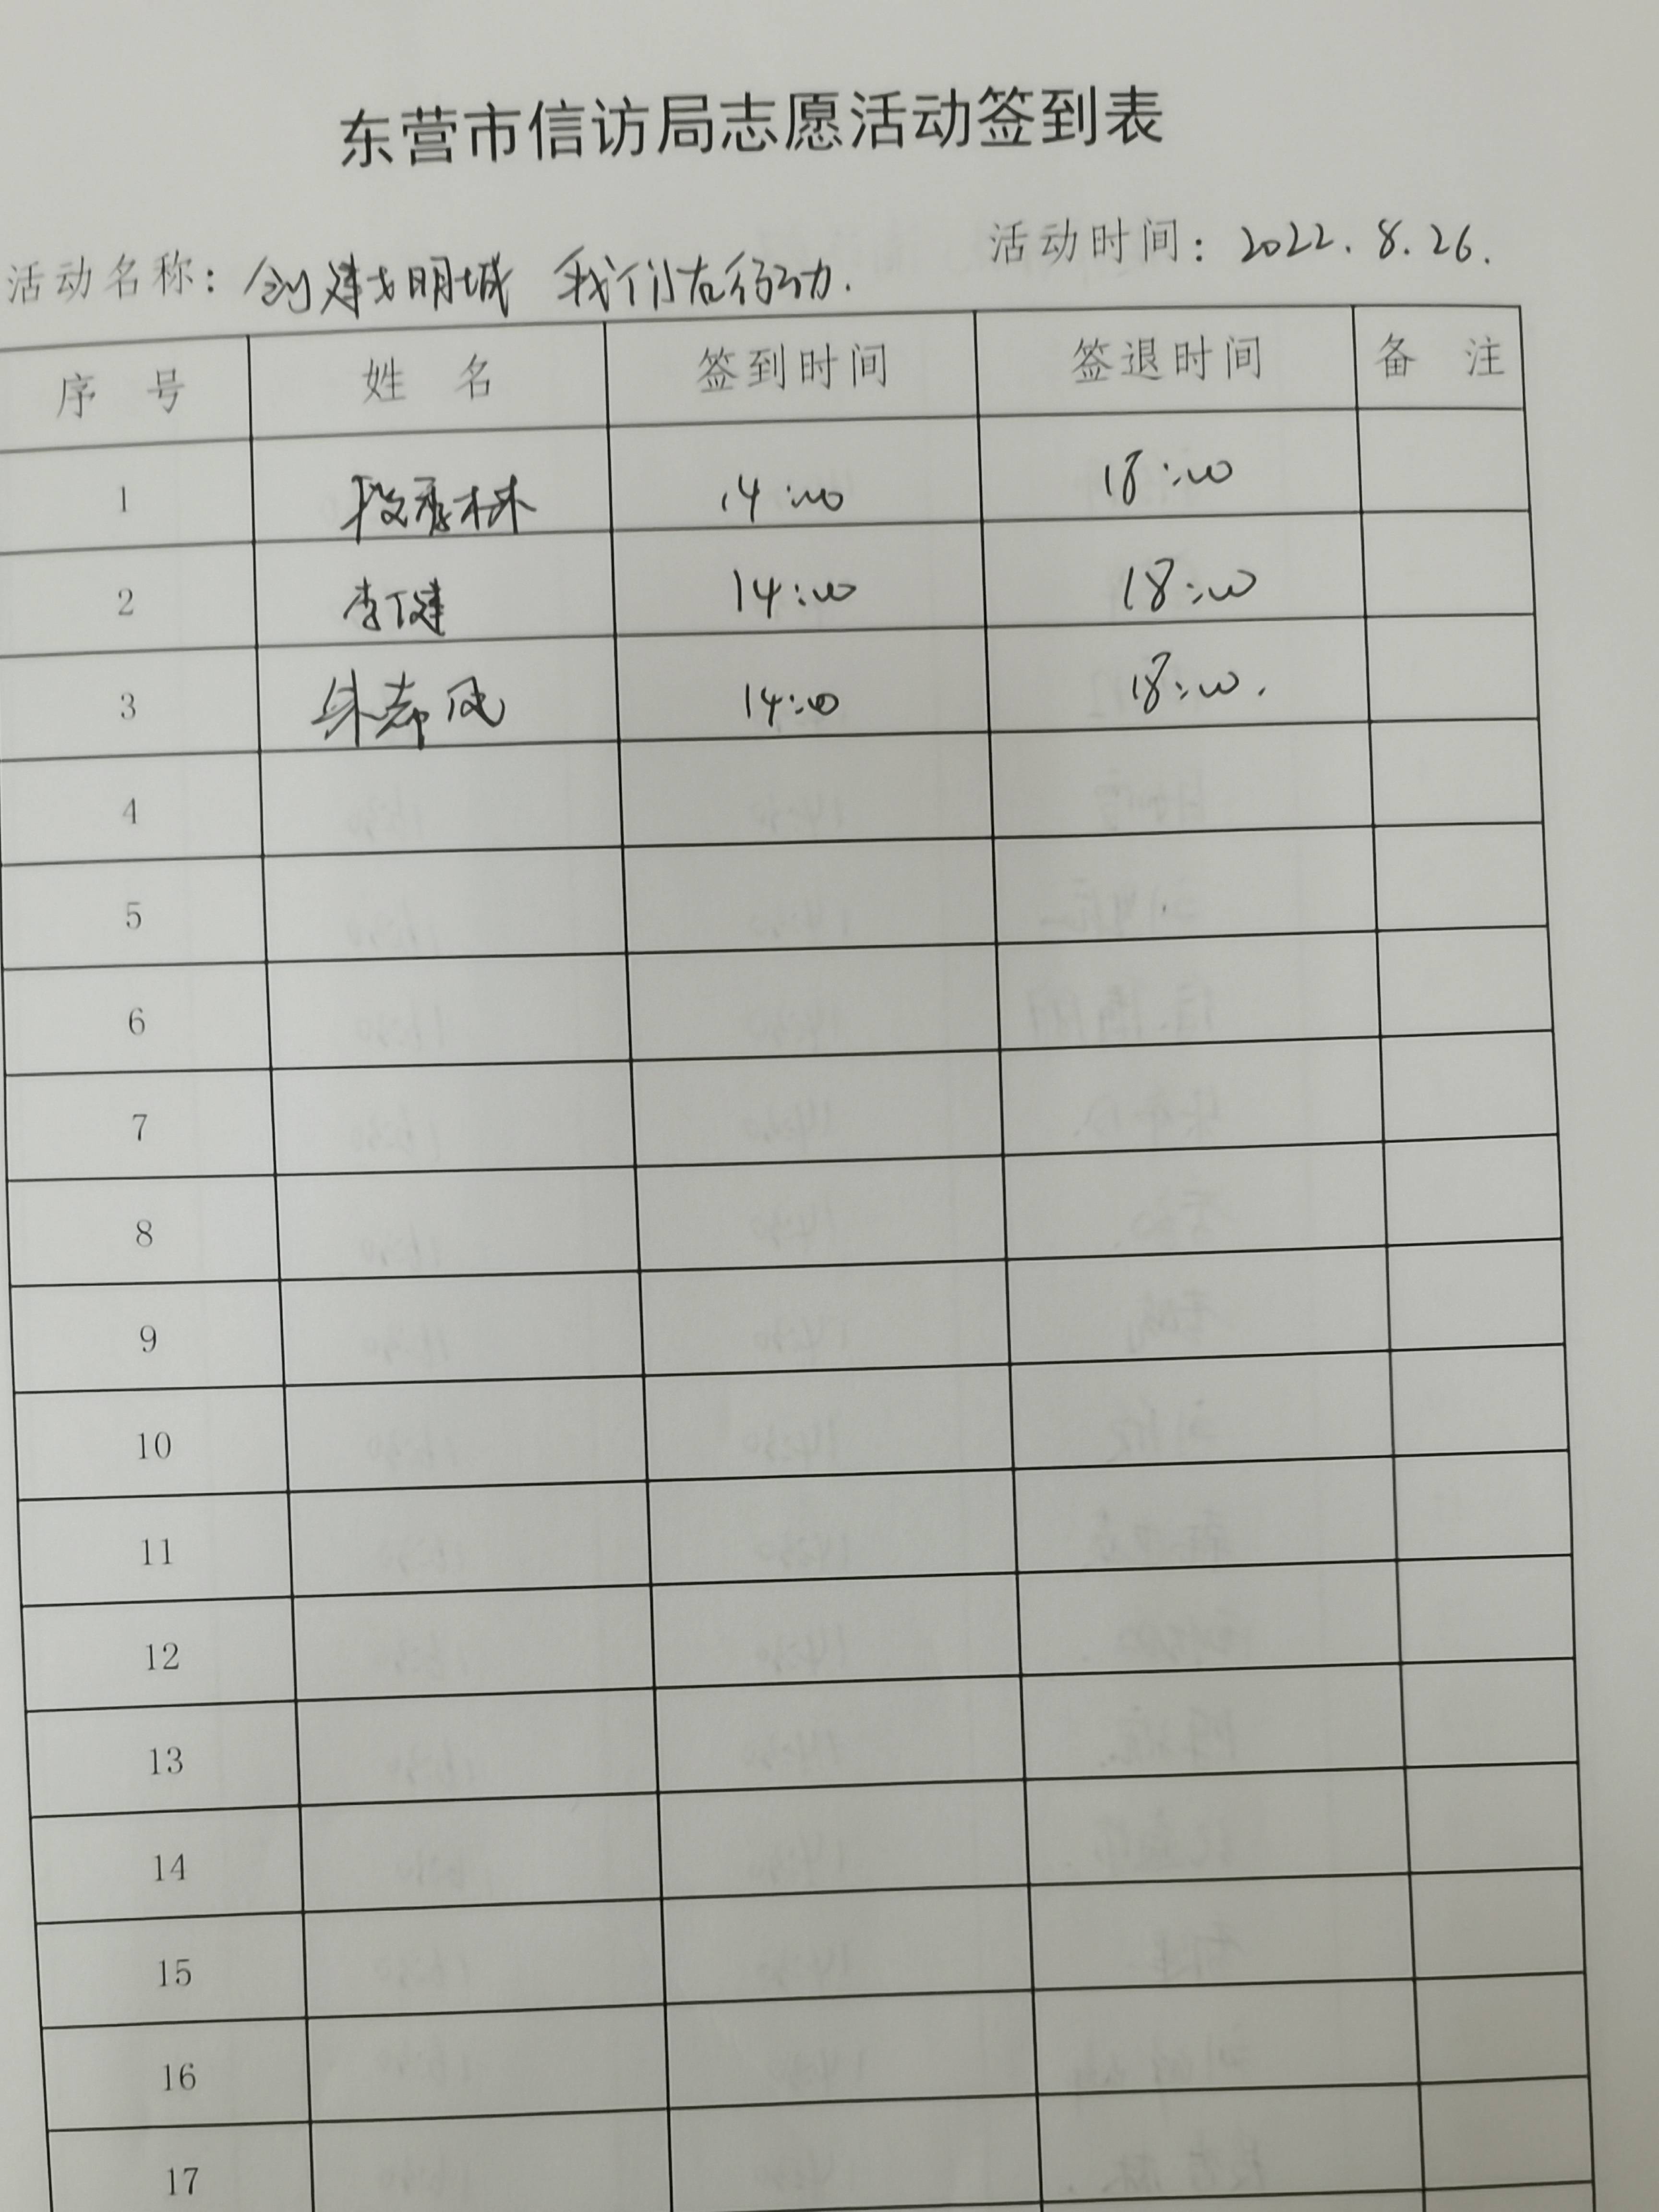 东营市信访局志愿活动签到表
活动名称：创建文明城 我们在行动. 活动时间：2022.8.26.
序 号 姓 名 签到时间 签退时间 备 注
1 14:00 18:00
2 李健 14:00 18:00
3 朱志风 14:00 18:00.
4
5
6
7
8
9
10
11
12
13
14
15
16
17